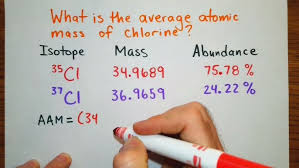 What is the average atomic
mass of chlorine?
Isotope Mass Abundance
³⁵Cl 34.9689 75.78 %
³⁷Cl 36.9659 24.22 %
AAM = (34